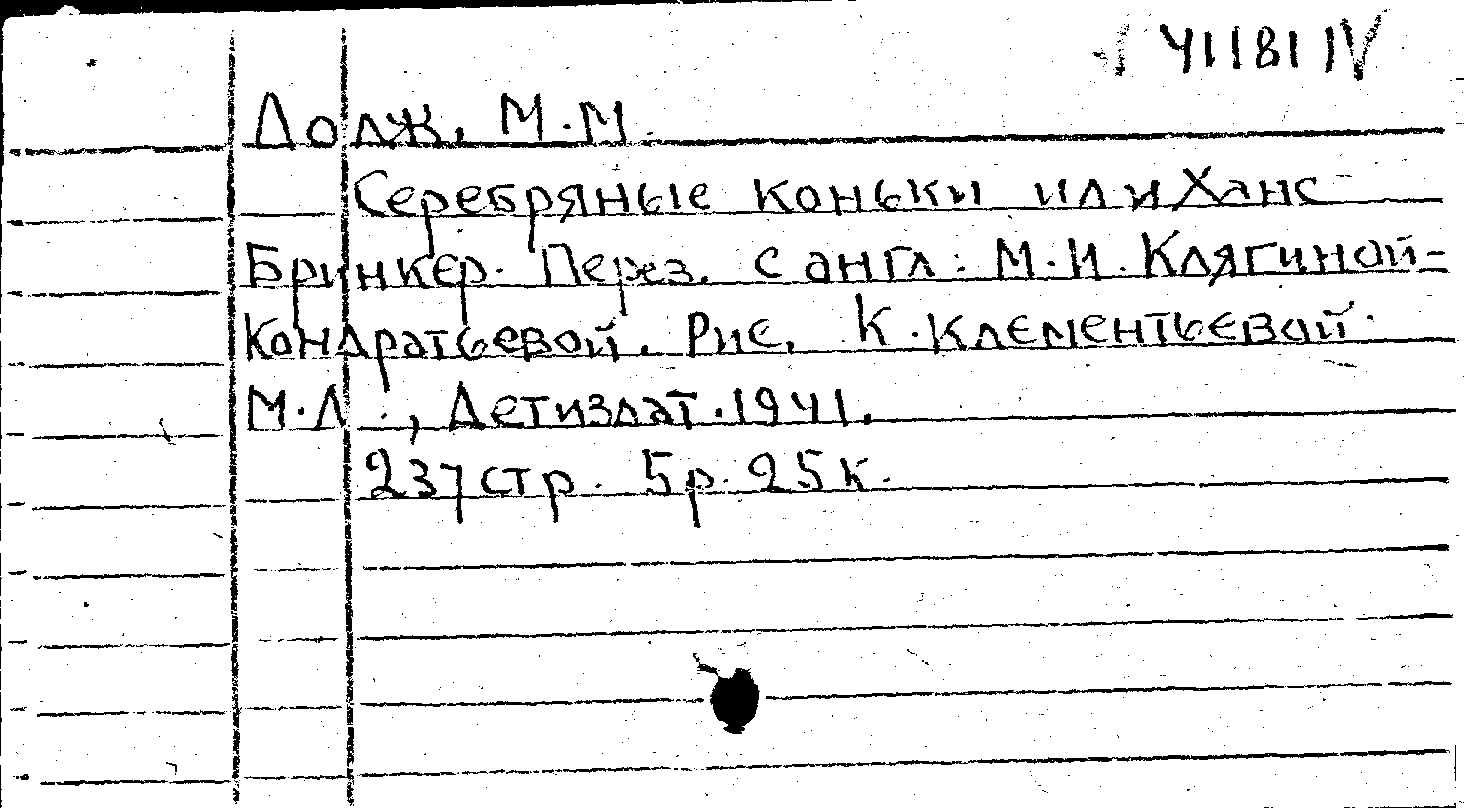 √ 41181 IV
Додж, М.М.
Серебряные коньки или Ханс
Бринкер. Перез. с англ. М.И. Клягиной-
Кондратьевой. Рис. К. Клементьевой.
М.Л., Детиздат. 1941.
237 стр. 5 р. 25 к.